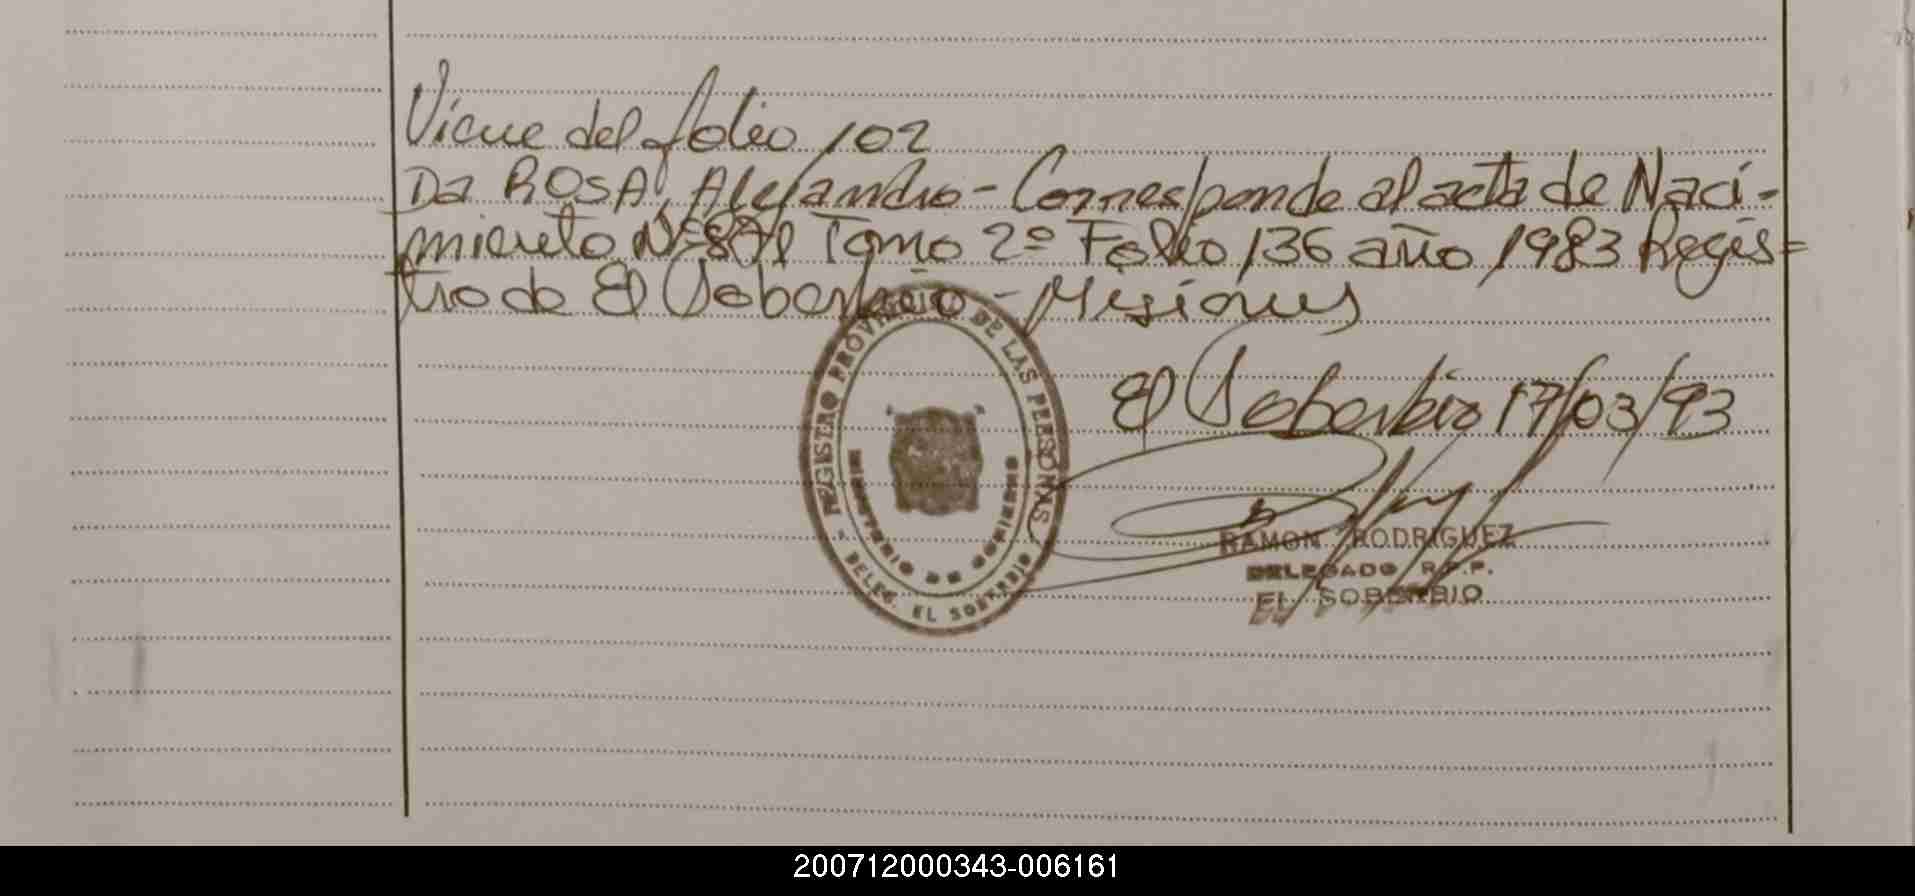 Viene del folio 102
Da ROSA, Alejandro - Corresponde al acta de Naci-
miento Nº Tomo 2º Folio 136 año 1983 Regis=
tro de El Soberbio - Misiones
El Soberbio 17/03/93
REGISTRO PROVINCIAL DE LAS PERSONAS
MINISTERIO DE GOBIERNO
- DELEG. EL SOBERBIO
RAMON RODRIGUEZ
DELEGADO R.P.P.
EL SOBERBIO
200712000343-006161